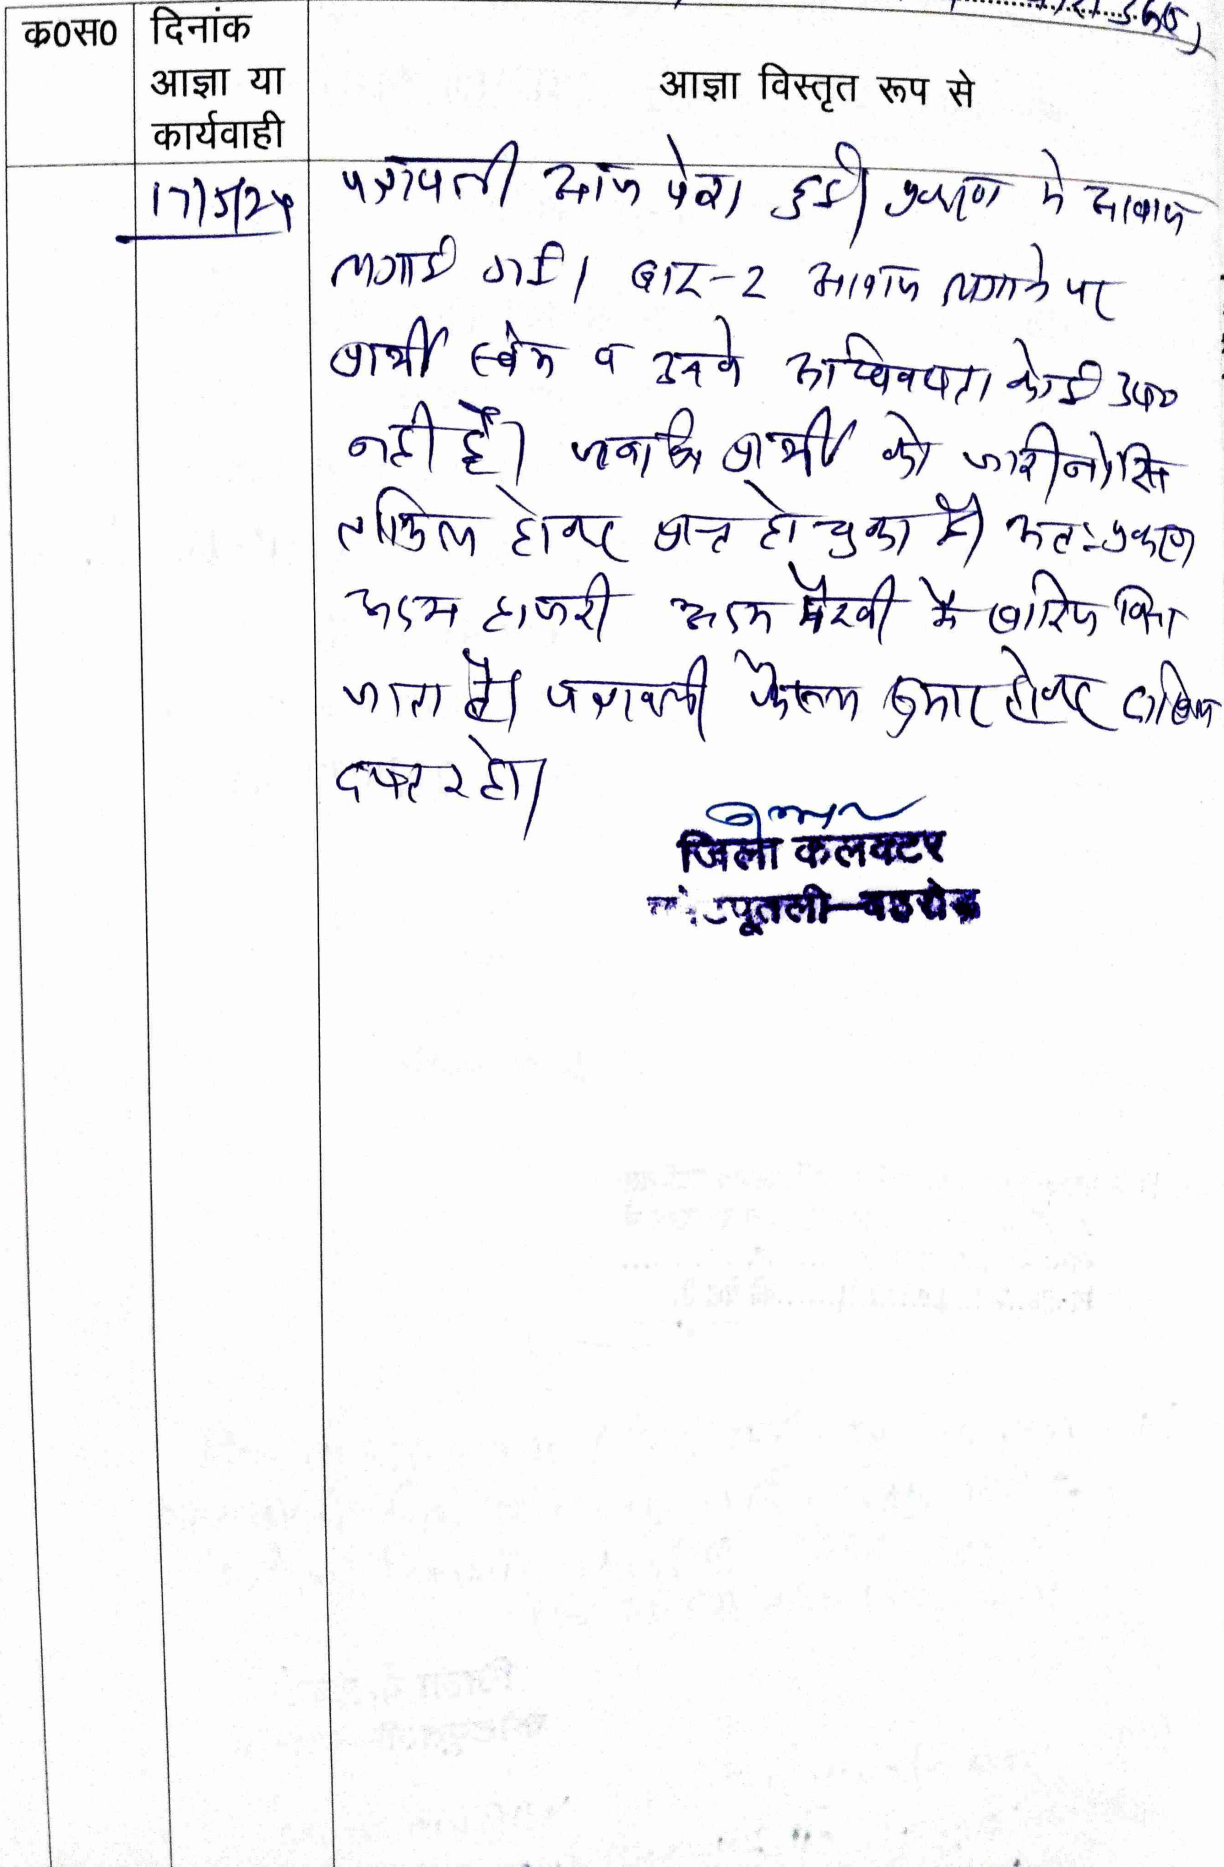 क0स0
दिनांक
आज्ञा या
कार्यवाही
आज्ञा विस्तृत रूप से
17/5/24
पत्रावली आज पेश हुई। प्रकरण मे आवाज
लगाई गई। बार-2 आवाज लगाने पर
प्रार्थी स्वंय व उनके अधिवक्ता कोई उप०
नही है। जबकि प्रार्थी को जारी नोटिस
तामिल होकर प्राप्त हो चुका है। अतः प्रकरण
अदम हाजरी अदम पैरवी मे खारिज किया
जाता है। पत्रावली फैसल शुमार होकर दाखिल
दफ्तर हो।
जिला कलक्टर
कोटपूतली-बहरोड